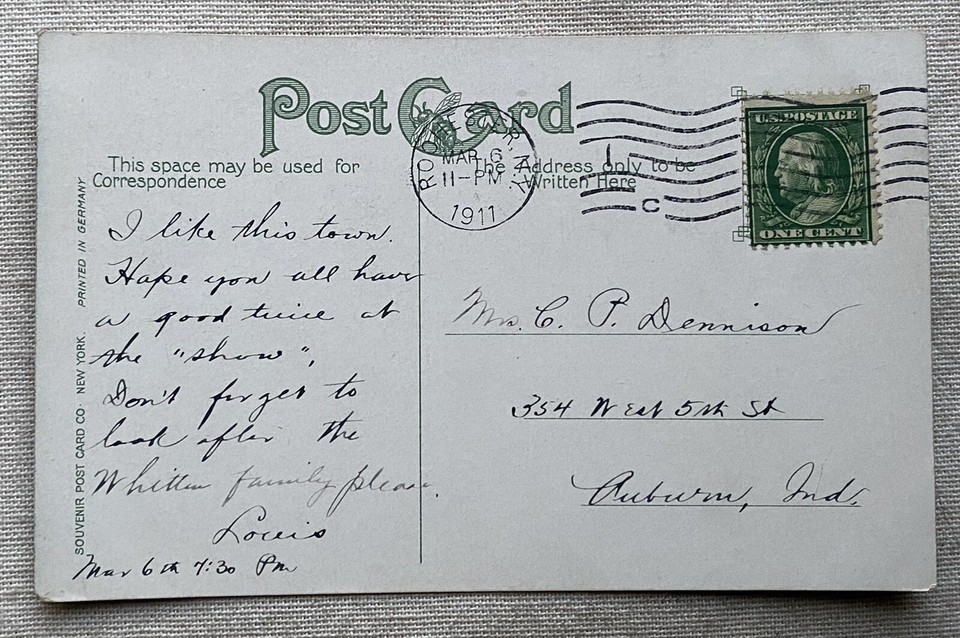 Post Card
This space may be used for
Correspondence
The Address only to be
Written Here
ROCHESTER
N.Y.
MAR 6
11-PM
1911
C
U.S. POSTAGE
ONE CENT
SOUVENIR POST CARD CO. NEW YORK. PRINTED IN GERMANY
I like this town.
Hope you all have
a good time at
the "show",
Don't forget to
look after the
Whitten family please.
Louis
Mar 6th 7:30 Pm
Mrs. C. P. Dennison
354 West 5th St
Auburn, Ind.